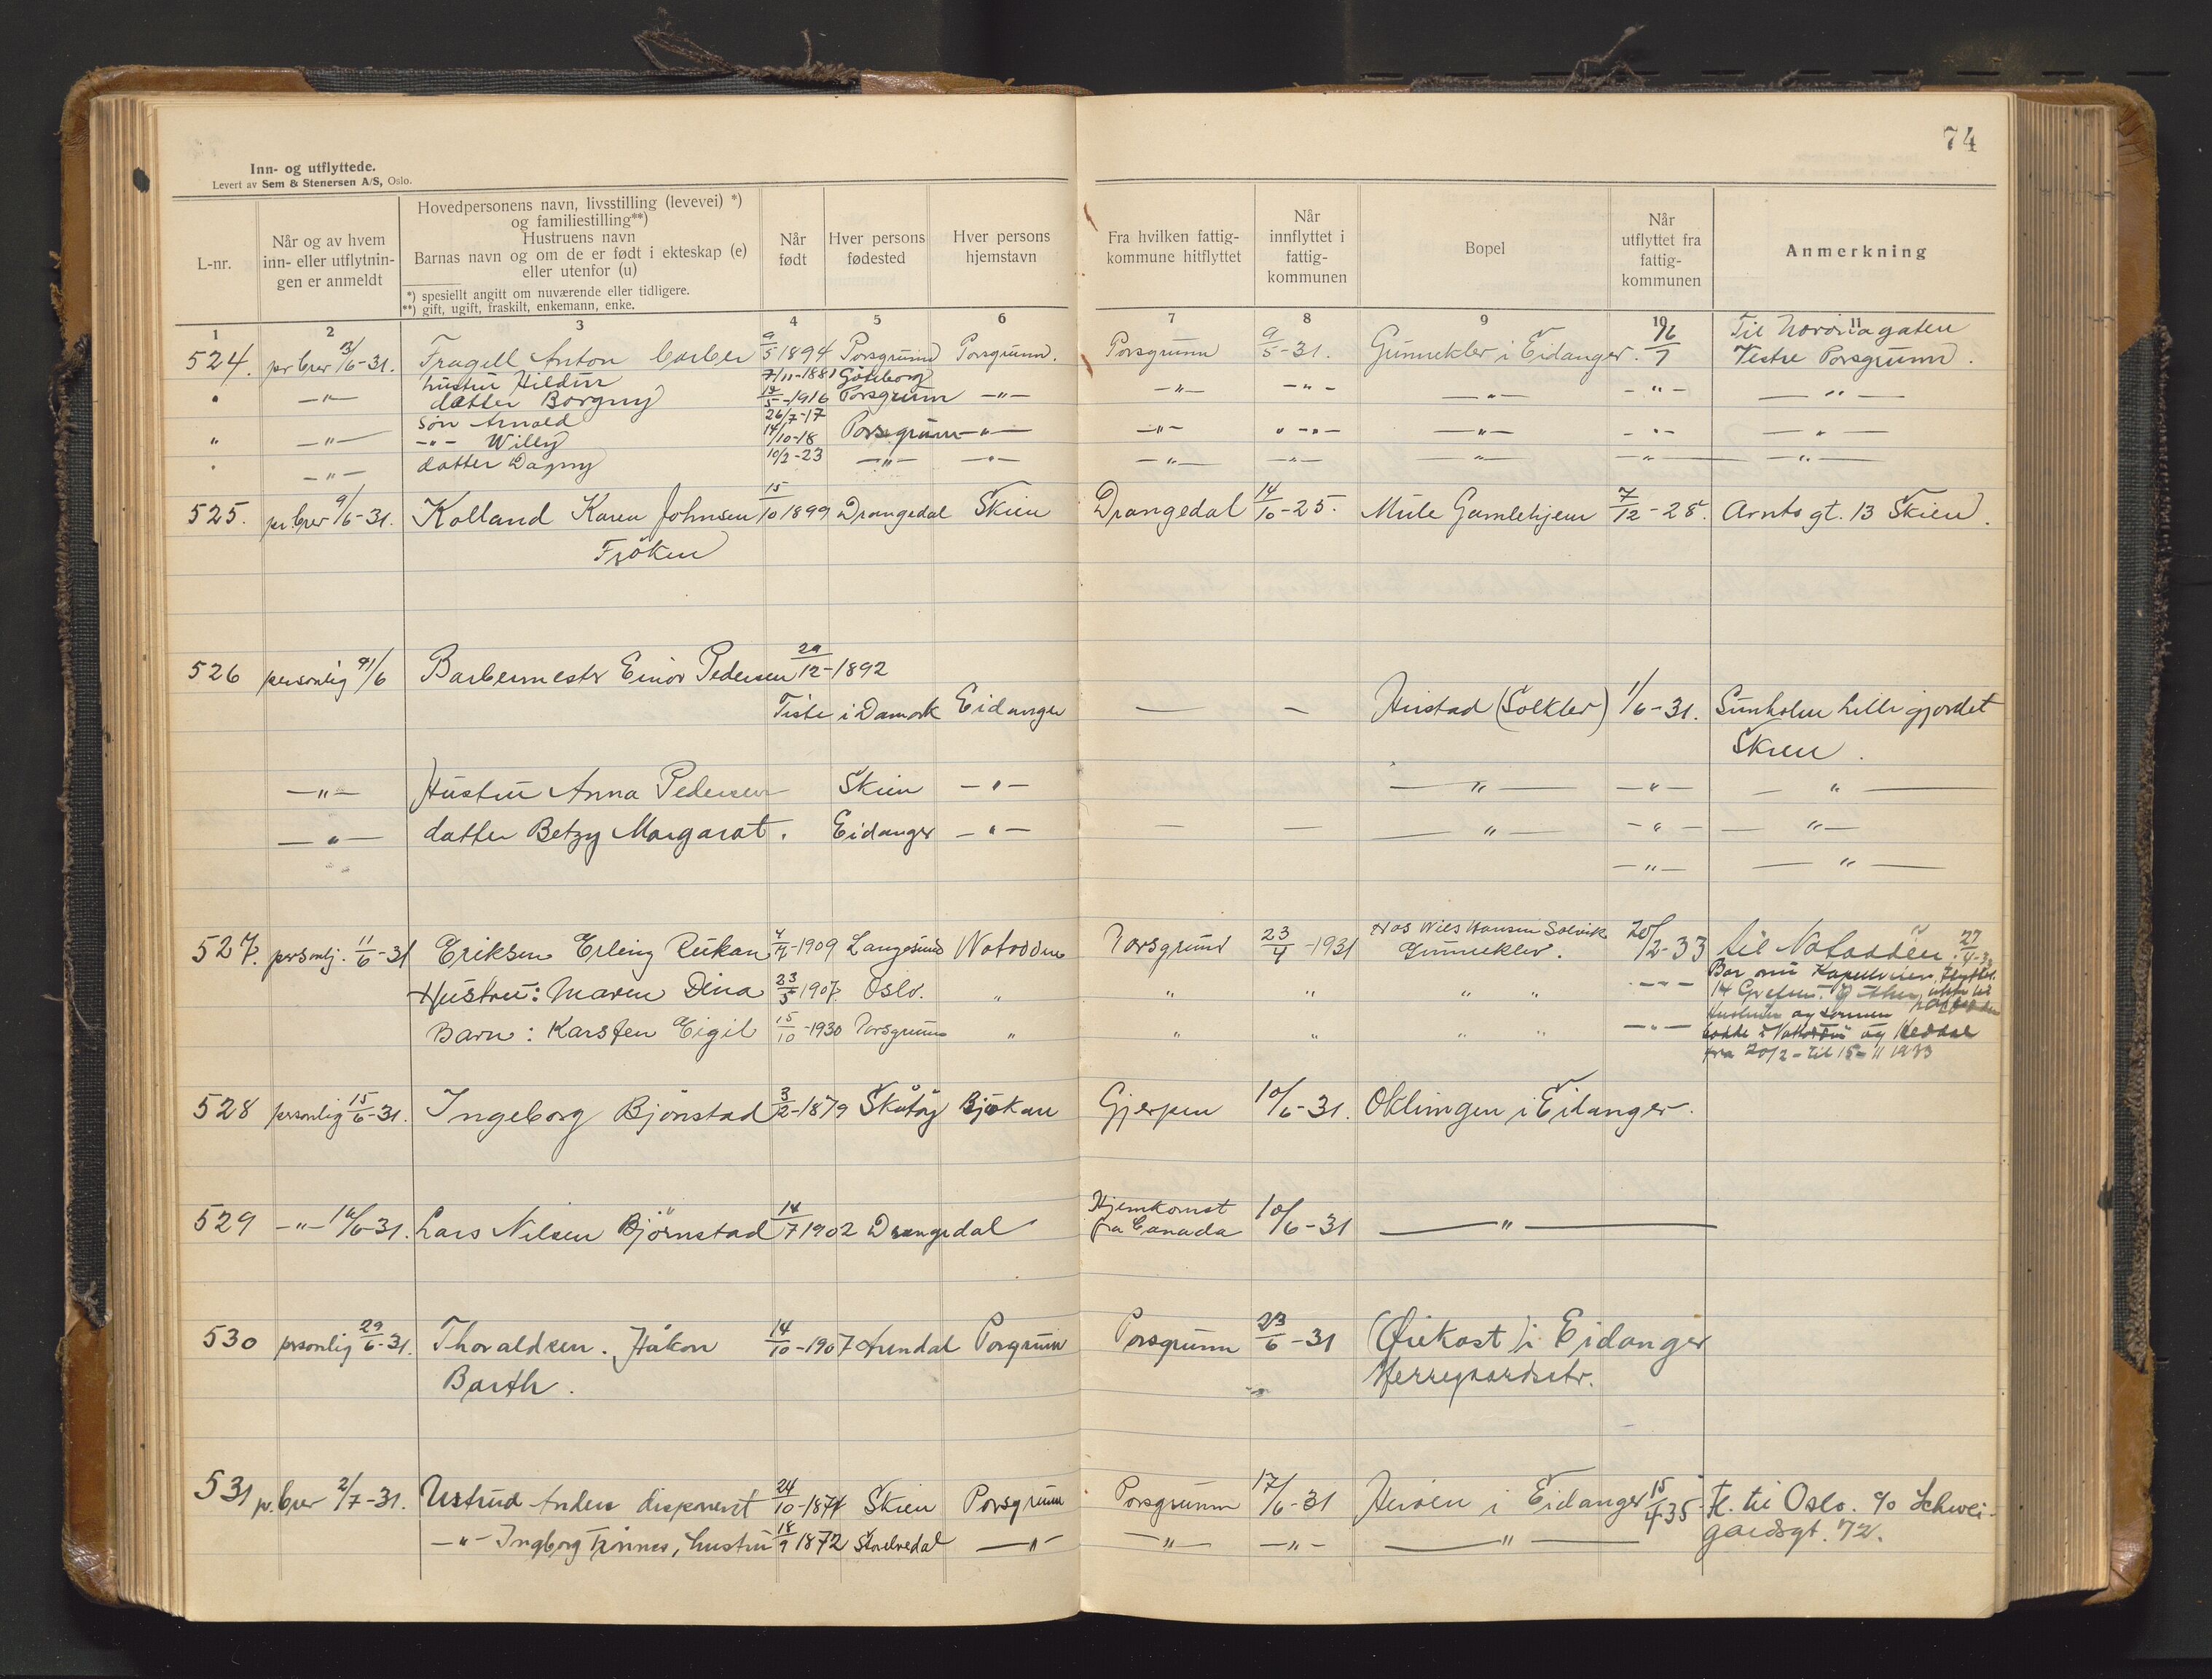 74
Inn- og utflyttede.
Levert av Sem & Stenersen A/S, Oslo.
L-nr.
Når og av hvem inn- eller utflytnin-gen er anmeldt
Hovedpersonens navn, livsstilling (levevei) *)
og familiestilling**)
Hustruens navn
Barnas navn og om de er født i ekteskap (e)
eller utenfor (u)
*) spesiellt angitt om nuværende eller tidligere.
**) gift, ugift, fraskilt, enkemann, enke.
Når født
Hver persons fødested
Hver persons hjemstavn
Fra hvilken fattig-kommune hitflyttet
Når innflyttet i fattig-kommunen
Bopel
Når utflyttet fra fattig-kommunen
Anmerkning
1 2 3 4 5 6 7 8 9 10 11
524. pr brev 3/6-31. Fragell Anton barber 9/5 1894 Porsgrunn Porsgrunn. Porsgrunn 9/5-31. Gunneklev i Eidanger. Til
Vestre Porsgrunn.
" -"- hustru 7/11-1881 Göteborg -"- -"- -"- -"- -"-
datter Borgny 13/5-1916 Porsgrunn -"-
søn Arnold 26/7-17
" -"- -"- Willy 14/10-18 Porsgrunn -"- -"- " -"- -"- -"- -"-
" -"- datter Dagny 10/2-23 -"- -"- -"- -"- -"- -"- -"-
525. pr brev 9/6-31. Kolland Karen Johnsen 15/10 1899 Drangedal Skien Drangedal 14/10-25. Mule Gamlehjem 7/12-28. Arnts gt. 13 Skien.
Frøken
526 personlig /6 Barbermestr Einor Pedersen 29/12-1892
Tiste i Damark Eidanger — - (Solklev) 1/6-31. lille gjordet
Skien.
-"- Hustru Anna Pedersen Skien -"- -"- -"- -"-
-"- datter Betzy Margarat. Eidanger -"- — — -"- -"- -"-
-"- -"-
527. personlj. 11/6-31 Eriksen Erling Rukan 4/4-1909 Langesund Notodden Porsgrund 23/4-1931 Hos Nils Hansen Solvik
Gunneklev. 20/2-33 til Notodden.
Hustru: Maren Dina 23/5 1907 Oslo. " " " " " -"-
Barn: Karsten Eigil 15/10-1930 Porsgrunn " " " " " -"-
fra 20/2 - til 15-11 1933
528 personlig 15/6-31. Ingeborg Bjönstad 3/2-1879 Skåtøy Gjerpen 10/6-31. Oklungen i Eidanger.
529 -"- 16/6-31. Lars Nilsen Björnstad 14/7 1902 Drangedal Hjemkomst
fra Canada 10/6-31 -"-
530 prsonlig 29/6-31. Thoraldsen. Håkon 14/10-1907 Arendal Porgrunn Porsgrunn 23/6-31 (Øiekast) i Eidanger
Barth. Herregaardsstr.
531 pr. brev 2/7-31. Ustrud Anders disponent 24/10-1874 Skien Porsgrunn Porsgrunn 17/6-31 Herøen i Eidanger 15/4 35 Fl. til Oslo. c/o Schwei-
gardsgt. 72.
-"- Ingborg Tönnes, hustru 18/9 1872 Storelvedal -"- -"- -"- -"-